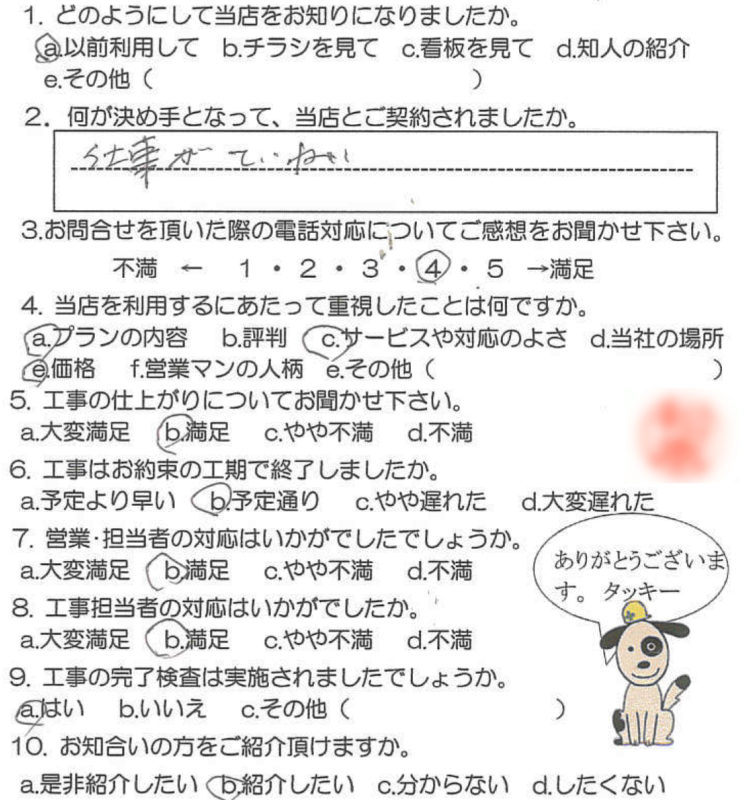 1. どのようにして当店をお知りになりましたか。
a.以前利用して b.チラシを見て c.看板を見て d.知人の紹介
e.その他（ ）
2. 何が決め手となって、当店とご契約されましたか。
仕事がていねい
3.お問合せを頂いた際の電話対応についてご感想をお聞かせ下さい。
不満 ← 1・2・3・4・5 →満足
4. 当店を利用するにあたって重視したことは何ですか。
a.プランの内容 b.評判 c.サービスや対応のよさ d.当社の場所
e.価格 f.営業マンの人柄 e.その他（ ）
5. 工事の仕上がりについてお聞かせ下さい。
a.大変満足 b.満足 c.やや不満 d.不満
6. 工事はお約束の工期で終了しましたか。
a.予定より早い b.予定通り c.やや遅れた d.大変遅れた
7. 営業・担当者の対応はいかがでしたでしょうか。
a.大変満足 b.満足 c.やや不満 d.不満
ありがとうございま
す。 タッキー
8. 工事担当者の対応はいかがでしたか。
a.大変満足 b.満足 c.やや不満 d.不満
9. 工事の完了検査は実施されましたでしょうか。
a.はい b.いいえ c.その他（ ）
10. お知合いの方をご紹介頂けますか。
a.是非紹介したい b.紹介したい c.分からない d.したくない